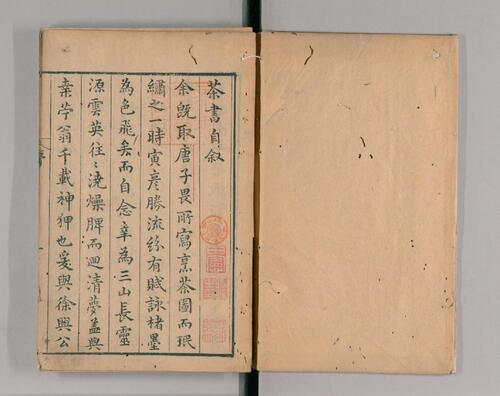 茶書自叙
余既取唐子畏所寫烹茶圖而珉
繡之一時寅彦勝流紛有賦詠楮墨
為色飛矣而自念幸為三山長靈
源雲英往〻澆燥脾而迴清夢盖與
桒苧翁千載神狎也爰與徐興公